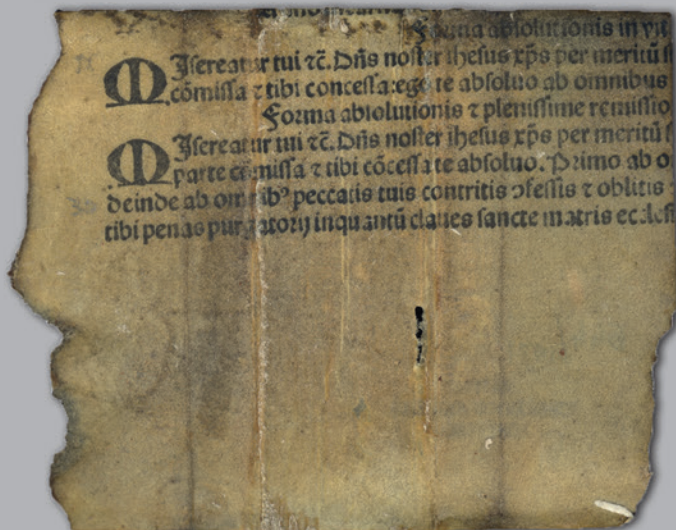 Forma absolutionis in vit
MIsereatur tui ⁊c̄. Dn̄s noster ihesus xp̄s per meritū
cōmissa ⁊ tibi concessa: ego te absoluo ab omnibus
Forma absolutionis ⁊ plenissime remissio
MIsereatur tui ⁊c̄. Dn̄s noster ihesus xp̄s per meritū
parte cōmissa ⁊ tibi cōcessa te absoluo. Primo ab o
deinde ab omnibꝰ peccatis tuis contritis ↄfessis ⁊ oblitis
tibi penas purgatorij inquantū claues sancte matris ecclesi